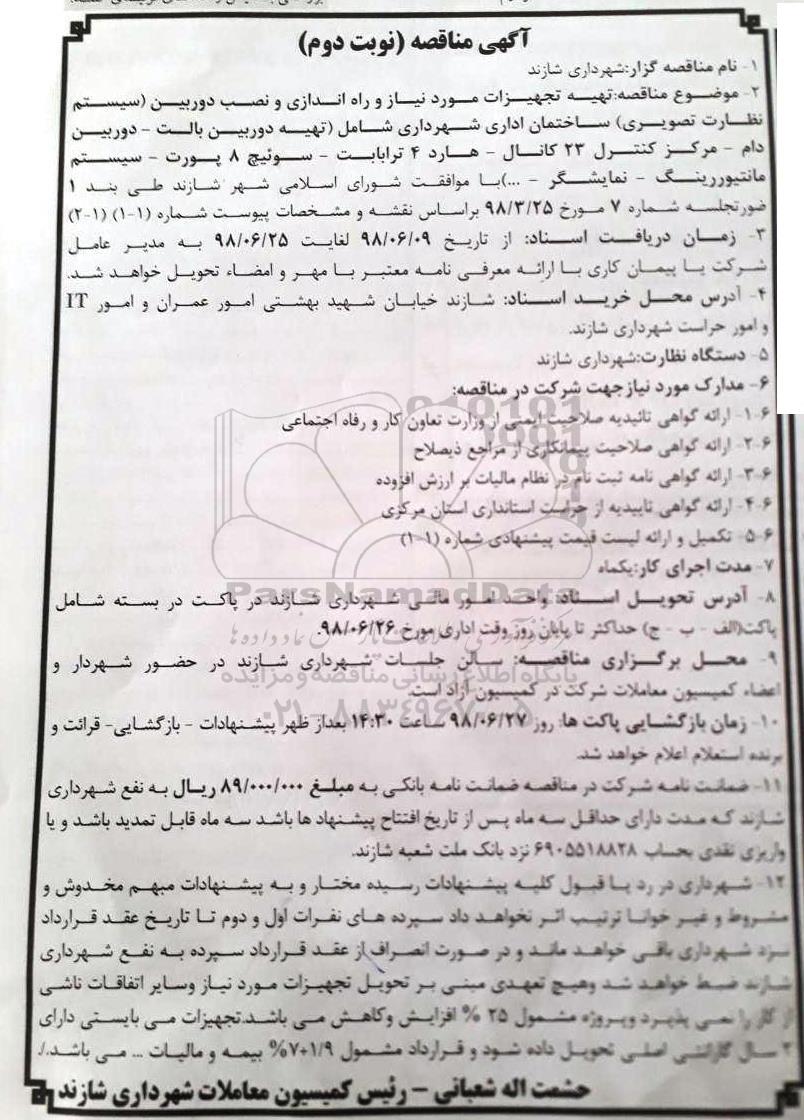 آگهی مناقصه (نوبت دوم)
۱- نام مناقصه گزار:شهرداری شازند
۲- موضوع مناقصه:تهیه تجهیزات مورد نیاز و راه اندازی و نصب دوربین (سیستم
نظارت تصویری) ساختمان اداری شهرداری شامل (تهیه دوربین بالت - دوربین
دام - مرکز کنترل ۲۳ کانال - هارد ۴ ترابایت - سوئیچ ۸ پورت - سیستم
مانتیوررینگ - نمایشگر - ...)با موافقت شورای اسلامی شهر شازند طی بند ۱
صورتجلسه شماره ۷ مورخ ۹۸/۳/۲۵ براساس نقشه و مشخصات پیوست شماره (۱-۱) (۱-۲)
۳- زمان دریافت اسناد: از تاریخ ۹۸/۰۶/۰۹ لغایت ۹۸/۰۶/۲۵ به مدیر عامل
شرکت یا پیمان کاری با ارائه معرفی نامه معتبر با مهر و امضاء تحویل خواهد شد.
۴- آدرس محل خرید اسناد: شازند خیابان شهید بهشتی امور عمران و امور IT
و امور حراست شهرداری شازند.
۵- دستگاه نظارت:شهرداری شازند
۶- مدارک مورد نیازجهت شرکت در مناقصه:
۱-۶- ارائه گواهی تائیدیه صلاحیت ایمنی از وزارت تعاون کار و رفاه اجتماعی
۲-۶- ارائه گواهی صلاحیت پیمانکاری از مراجع ذیصلاح
۳-۶- ارائه گواهی نامه ثبت نام در نظام مالیات بر ارزش افزوده
۴-۶- ارائه گواهی تاییدیه از حراست استانداری استان مرکزی
۵-۶- تکمیل و ارائه لیست قیمت پیشنهادی شماره (۱-۱)
۷- مدت اجرای کار:یکماه
ParsNamadData
۸- آدرس تحویل اسناد: واحد امور مالی شهرداری شازند در پاکت در بسته شامل
پاکت(الف - ب - ج) حداکثر تا پایان روز وقت اداری مورخ ۹۸/۰۶/۲۶.
۹- محل برگزاری مناقصه: سالن جلسات شهرداری شازند در حضور شهردار و
پایگاه اطلاع رسانی مناقصه و مزایده
اعضاء کمیسیون معاملات شرکت در کمیسیون آزاد است.
۱۰- زمان بازگشایی پاکت ها: روز ۹۸/۰۶/۲۷ ساعت ۱۴:۳۰ بعداز ظهر پیشنهادات - بازگشایی- قرائت و
برنده استعلام اعلام خواهد شد.
۱۱- ضمانت نامه شرکت در مناقصه ضمانت نامه بانکی به مبلغ ۸۹/۰۰۰/۰۰۰ ریال به نفع شهرداری
شازند که مدت دارای حداقل سه ماه پس از تاریخ افتتاح پیشنهاد ها باشد سه ماه قابل تمدید باشد و یا
واریزی نقدی بحساب ۶۹۰۵۵۱۸۸۲۸ نزد بانک ملت شعبه شازند.
۱۲- شهرداری در رد یا قبول کلیه پیشنهادات رسیده مختار و به پیشنهادات مبهم مخدوش و
مشروط و غیر خوانا ترتیب اثر نخواهد داد سپرده های نفرات اول و دوم تا تاریخ عقد قرارداد
نزد شهرداری باقی خواهد ماند و در صورت انصراف از عقد قرارداد سپرده به نفع شهرداری
شازند ضبط خواهد شد وهیچ تعهدی مبنی بر تحویل تجهیزات مورد نیاز وسایر اتفاقات ناشی
از کار را نمی پذیرد وپروژه مشمول ۲۵ % افزایش وکاهش می باشد.تجهیزات می بایستی دارای
۲ سال گارانتی اصلی تحویل داده شود و قرارداد مشمول ۷+۱/۹% بیمه و مالیات ... می باشد./.
حشمت اله شعبانی - رئیس کمیسیون معاملات شهرداری شازند